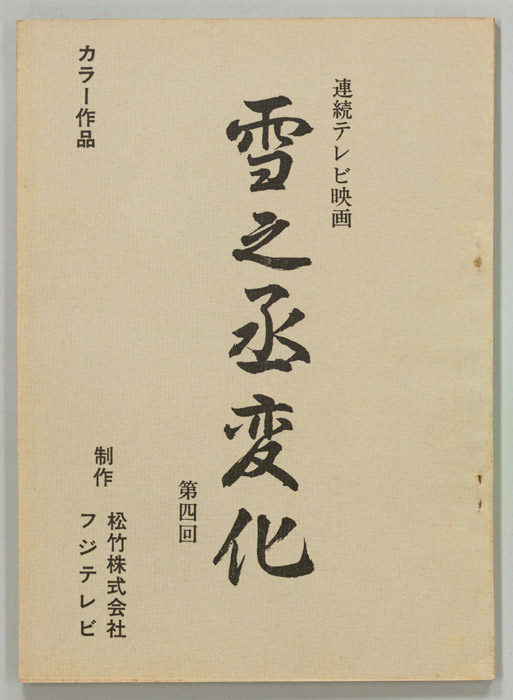 連続テレビ映画
雪之丞変化
第四回
カラー作品
制作
松竹株式会社
フジテレビ